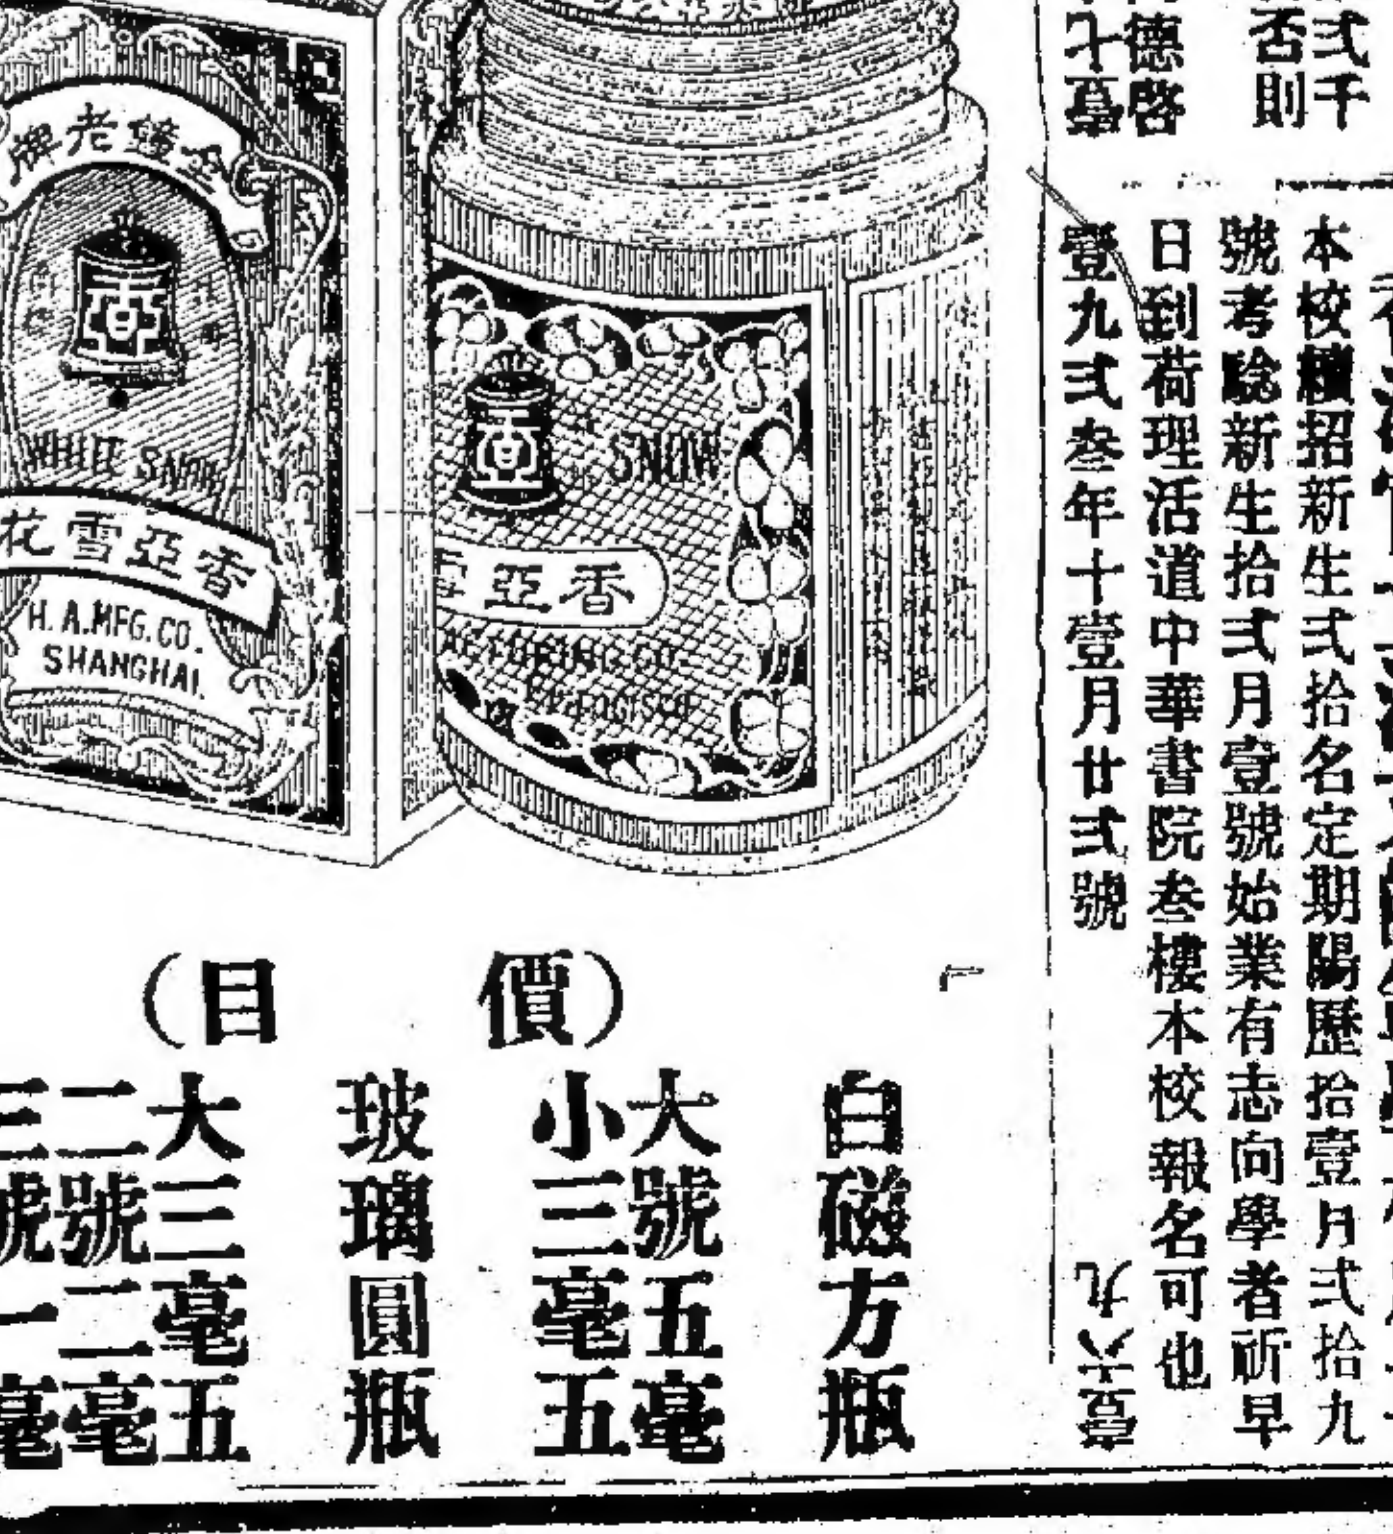 弍千
否則
德啓
七臺
本校續招新生弍拾名定期陽歷拾壹月弍拾九
號考騐新生拾弍月壹號始業有志向學者祈早
日到荷理活道中華書院叁樓本校報名可也
壹九弍叁年十壹月廿弍號
九六壹
金鐘老牌
香
WHITE SNOW
香亞雪花
H. A. MFG. CO.
SHANGHAI.
香
SNOW
香亞雪
(價目)
白磁方瓶
大號五毫
小三毫五
玻璃圓瓶
大三毫五
二號二毫
三號一毫